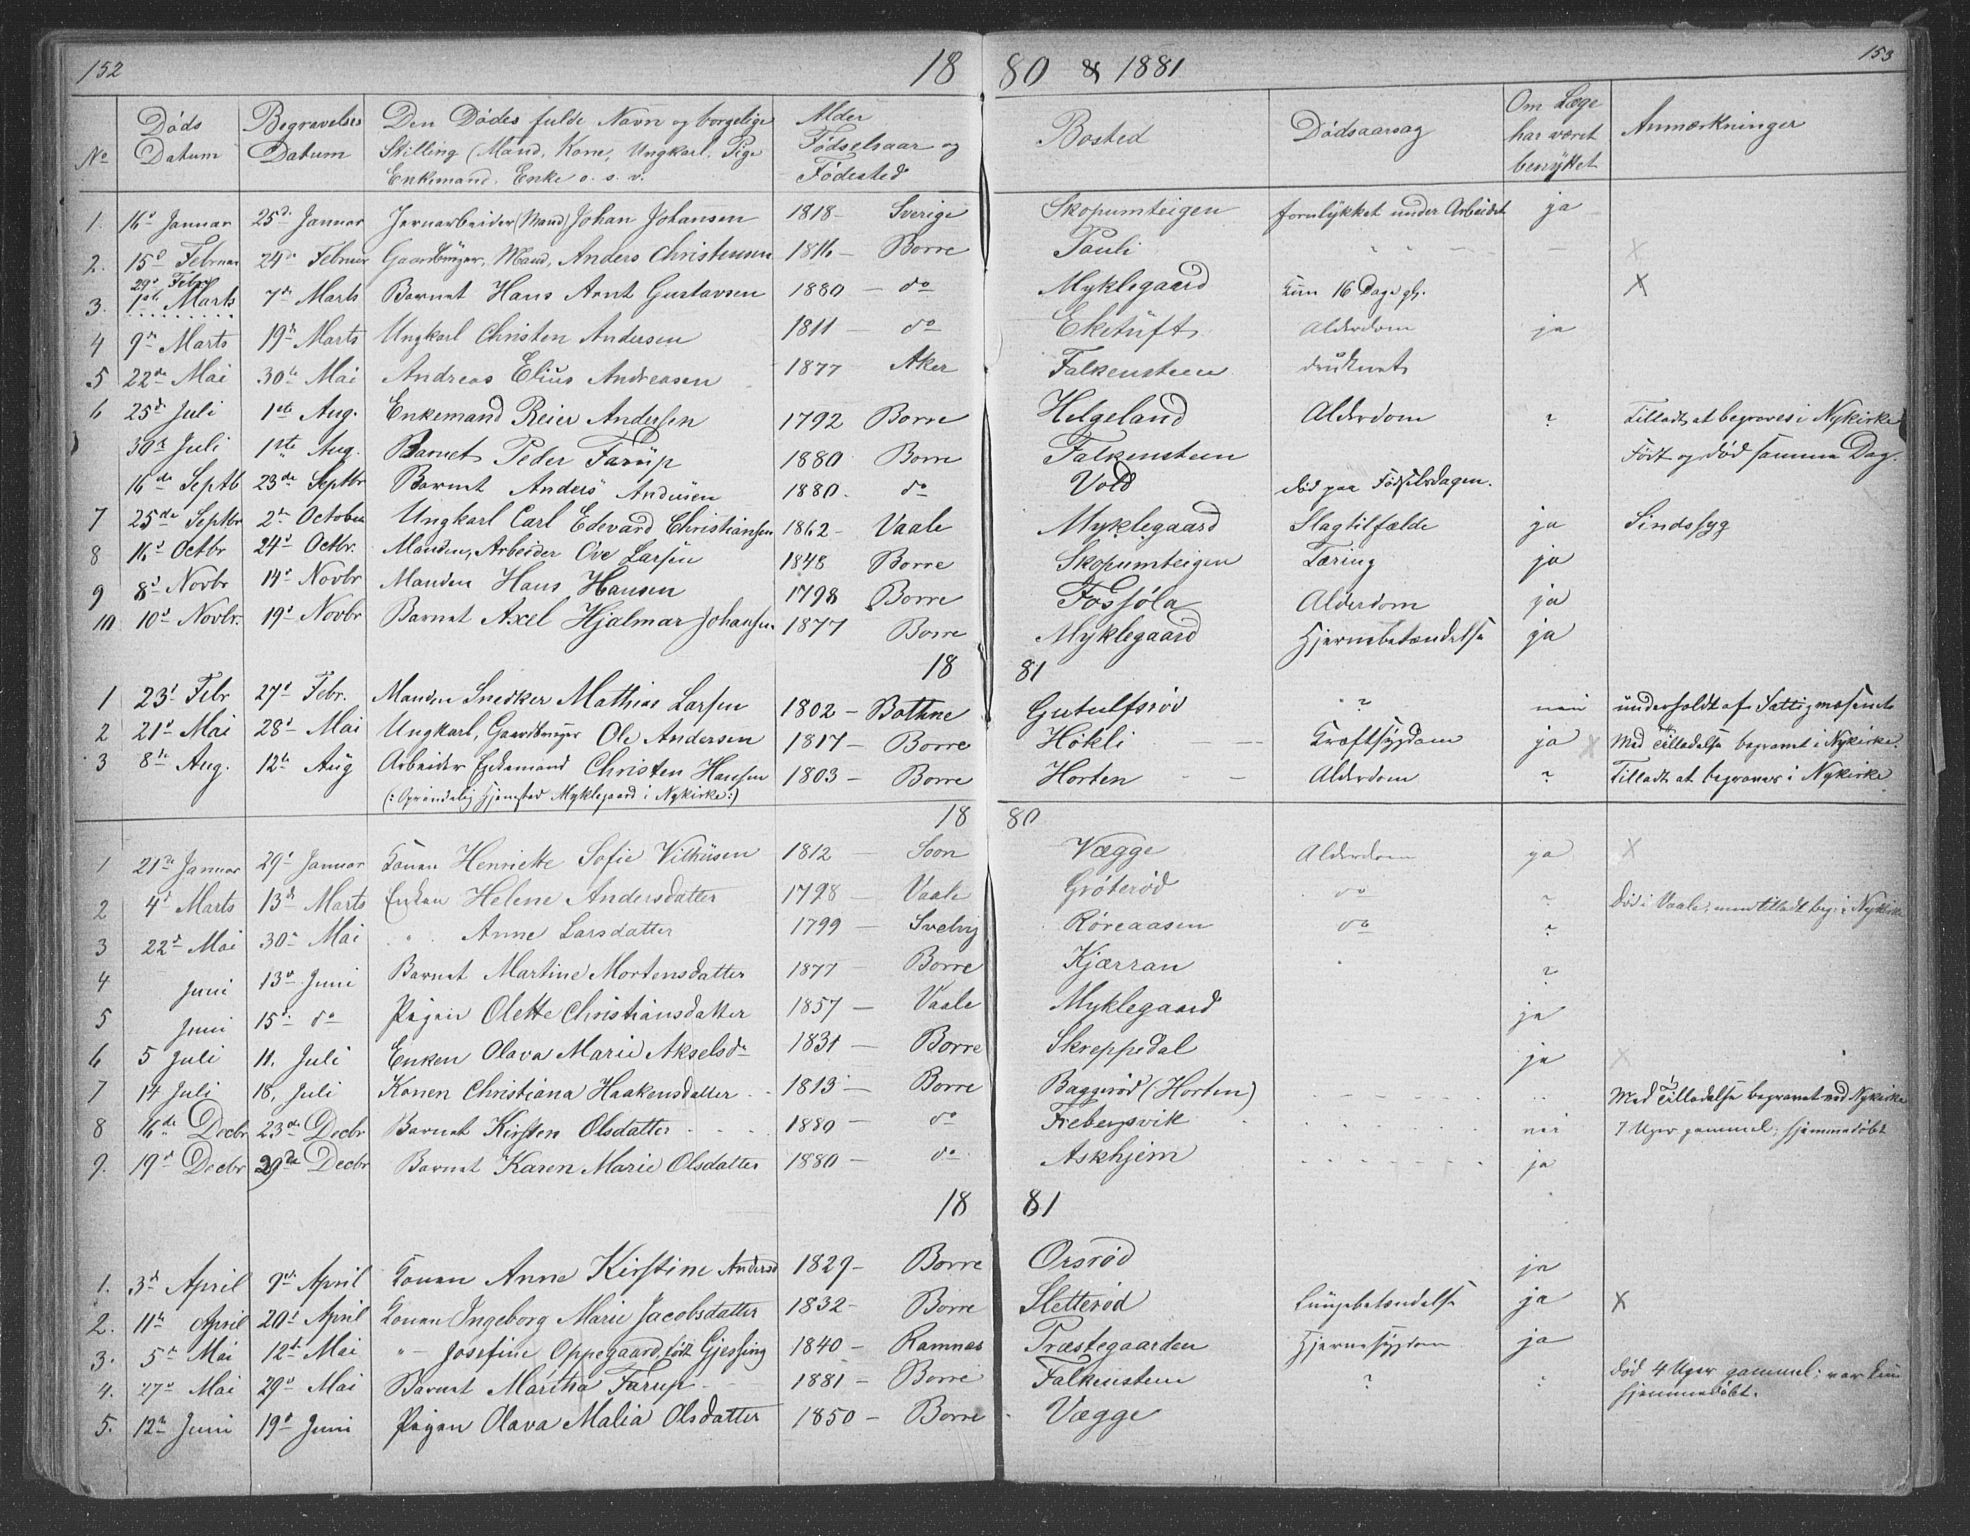 152 18 80 & 1881 153
No Døds Datum Begravelses Datum Den Dødes fulde Navn og borgelige Stilling (Mand, Kone, Ungkarl, Pige Enkemand, Enke o. s. v. Alder Fødselsaar og Fødested Bosted Dødsaarsag Om Læge har været benyttet Anmærkninger
1. 16d Januar 25de Januar Jernarbeider (Mand) Johan Johansen 1818 - Sverige Skopumteigen forulykket under Arbeidet ja
2. 15d Februar 24de Februar Gaardbruger, Mand, Anders Christensen 1816 - Borre Pauli " " - - - x
29d Febr
3. 1ste Marts 7de Marts Barnet Hans Arnt Gustavsen 1880 - do Myklegaard kun 16 Dage gl. x
4 9de Marts 19de Marts Ungkarl Christen Andersen 1811 - do Eketuft Alderdom ja
5 22de Mai 30te Mai Andreas Elius Andreasen 1877 Aker Falkensteen druknet
6 25de Juli 1ste Aug. Enkemand Reier Anderssen 1792 Borre Helgeland Alderdom ? Tilladt at begraves i Nykirke
30te Juli 1ste Aug. Barnet Peder Farup 1880 Borre Falkensteen Født og død samme Dag.
16de Septb 23de Septbr Barnet Anders Andersen 1880. do Vold død paa Fødselsdagen.
7 25de Septbr 2den October Ungkarl Carl Edevard Christiansen 1862 - Vaale Myklegaard Slagtilfælde ja Sindssyg
8 16d Octbr 24d Octbr. Manden, Arbeider Ove Larsen 1848 Borre Skopumteigen Tæring ja
9 8d Novbr 14d Novbr Manden Hans Hansen 1798 Borre Fossjøla Alderdom ja
10. 10d Novbr. 19d Novbr Barnet Axel Hjalmar Johansen 1877 Borre Myklegaard Hjernebetændelse ja
18 81
1 23d Febr 27d Febr. Manden Snedker Mathias Larsen 1802 - Bothne Gutulfsrød ? nei underholdt af Fattigvæsenet
2 21d Mai 28d Mai Ungkarl, Gaardbruger Ole Andersen 1817 - Borre Høkli - - Kræftsygdom ja x Med Tilladelse begravet i Nykirke.
3 8de Aug. 12te Aug Arbeider Enkemand Christen Hansen 1803 - Borre Horten - - Alderdom ? Tilladt at begraves i Nykirke
(: Oprindelig Hjemsted Myklegaard i Nykirke :)
18 80
1 21de Januar 29d Januar Konen Henriette Sofie Vilhusen 1812 - Soon Vægge Alderdom ja x
2 4d Marts 13de Marts Enken Helene Andersdatter 1798 - Vaale Grøterød do ? Død i Vaale; men tilladt beg. i Nykirke
3 22d Mai 30d Mai " " Anne Larsdatter 1799 - Svelvig Røreaasen do ?
4 Juni 13d Juni Barnet Martine Mortensdatter 1877 - Borre Kjærran ?
5 Juni 15d do Pigen Olette Christiansdatter 1857 - Vaale Myklegaard ja
6 5 Juli 11. Juli Enken Olava Marie Akselsdr 1831 - Borre Skreppedal ja x
7 14 Juli 18. Juli Konen Christiana Haakensdatter 1813 - Borre Baggerød (Horten) - - - - Med Tilladelse begravet ved Nykirke
8 16de Decbr 23de Decbr Barnet Kirsten Olsdatter 1880 - do Frebergsvik nei 7 Uger gammel; hjemmedøbt
9. 19d Decbr 29de Decbr Barnet Karen Marie Olsdatter 1880 - do Askhjem - - - - ja
18 81
1. 3d April 9de April Konen Anne Kirstine Andersd 1829 - Borre Orsrød ja
2. 11te April 20d April Konen Ingeborg Marie Jacobsdatter 1832 - Borre Sletterød Lungebetændelse ja x
3. 5d Mai 12te Mai " - Josefine Oppegaard, født Gjessing 1840 - Ramnæs Præstegaarden Hjernesygdom ja
4. 27d Mai 29d Mai Barnet Martha Farup 1881 - Borre Falkensteen ? : død 4 Uger gammel; var kun hjemmedøbt.
5. 12te Juni 19d Juni Pigen Olava Malia Olsdatter 1850 - Borre Vægge